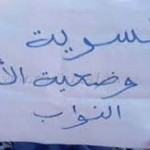 لسوية
وضعية الأ
النواب